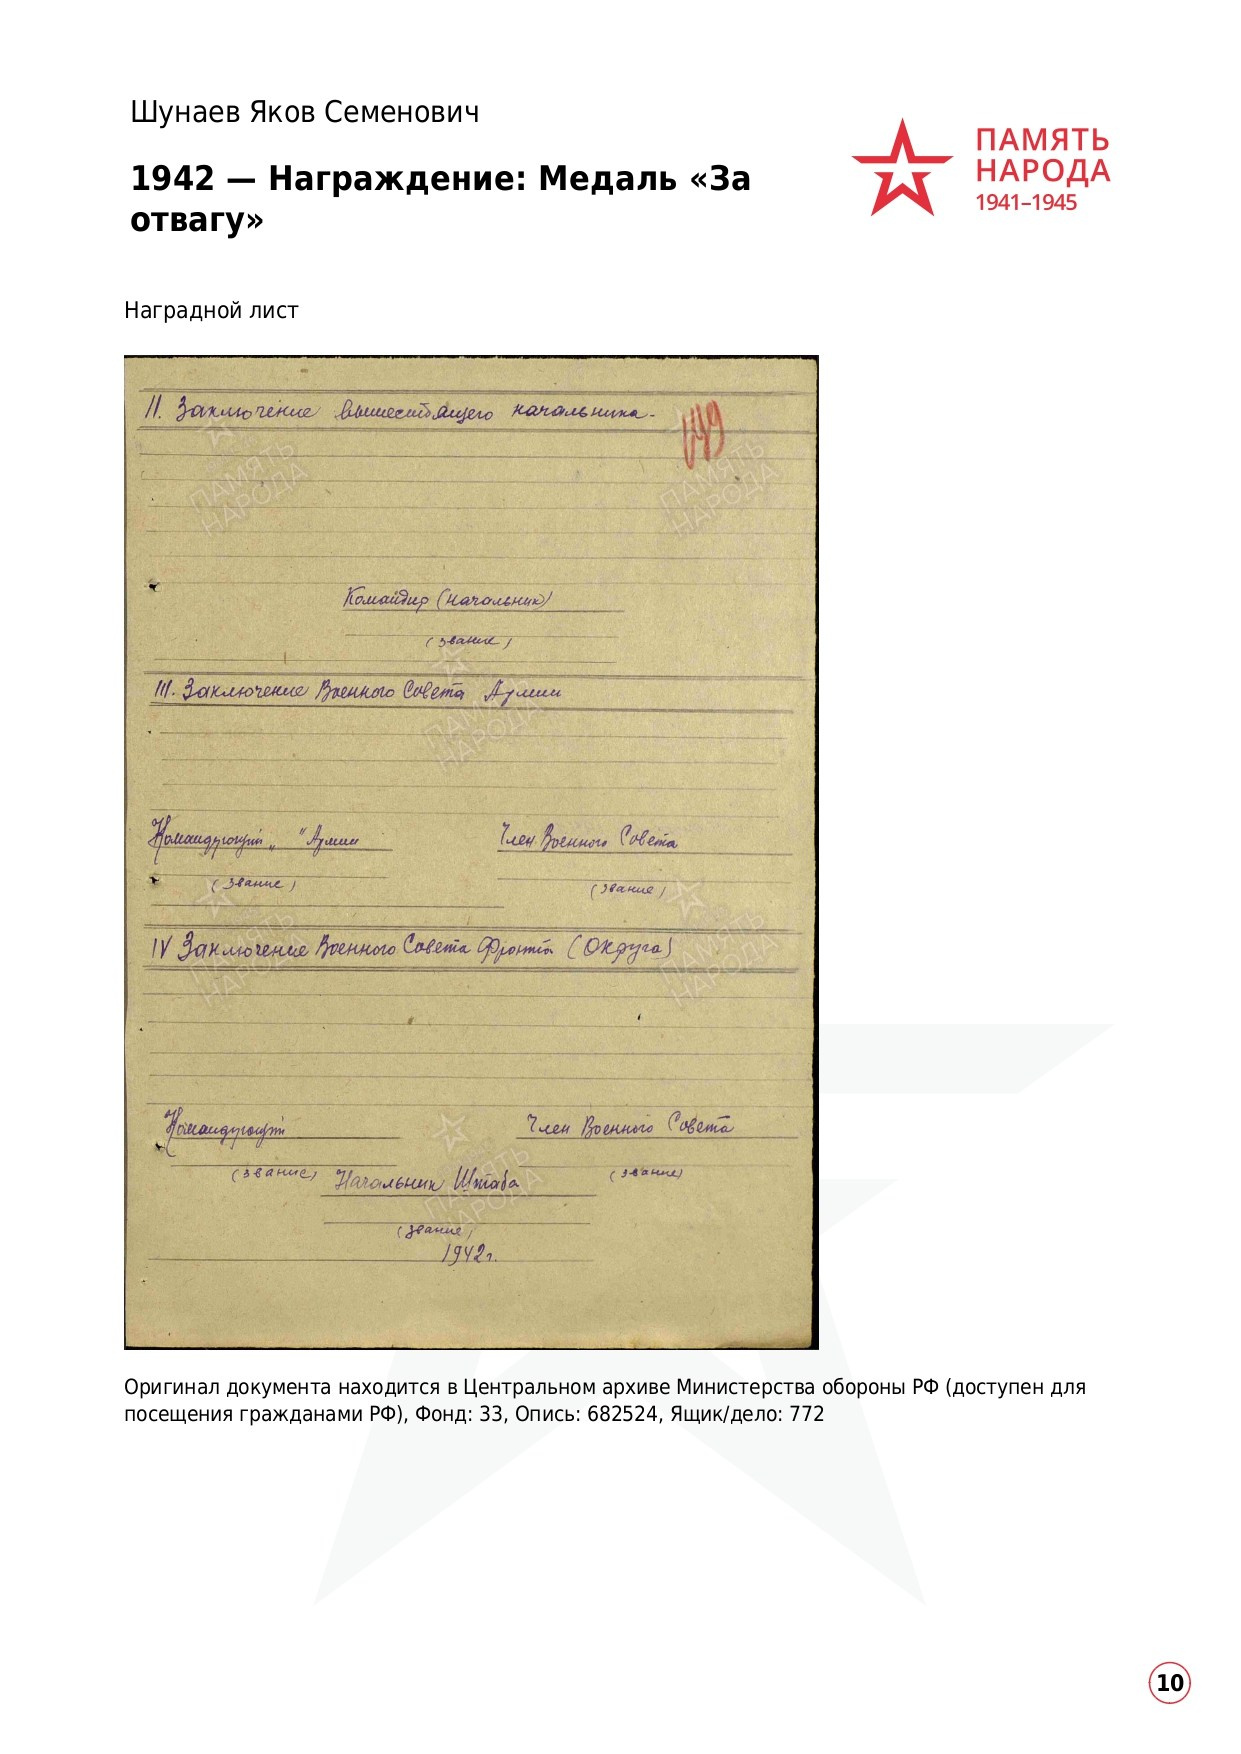 Шунаев Яков Семенович
1942 — Награждение: Медаль «За
отвагу»
ПАМЯТЬ
НАРОДА
1941–1945
Наградной лист
II. Заключение вышестоящего начальника.
Командир (начальник)
(звание)
III. Заключение Военного Совета Армии
Командующий „ " Армии
Член Военного Совета
(звание)
(звание)
IV Заключение Военного Совета Фронта (Округа)
Командующий
Член Военного Совета
(звание)
(звание)
Начальник Штаба
(звание)
1942г.
Оригинал документа находится в Центральном архиве Министерства обороны РФ (доступен для
посещения гражданами РФ), Фонд: 33, Опись: 682524, Ящик/дело: 772
10